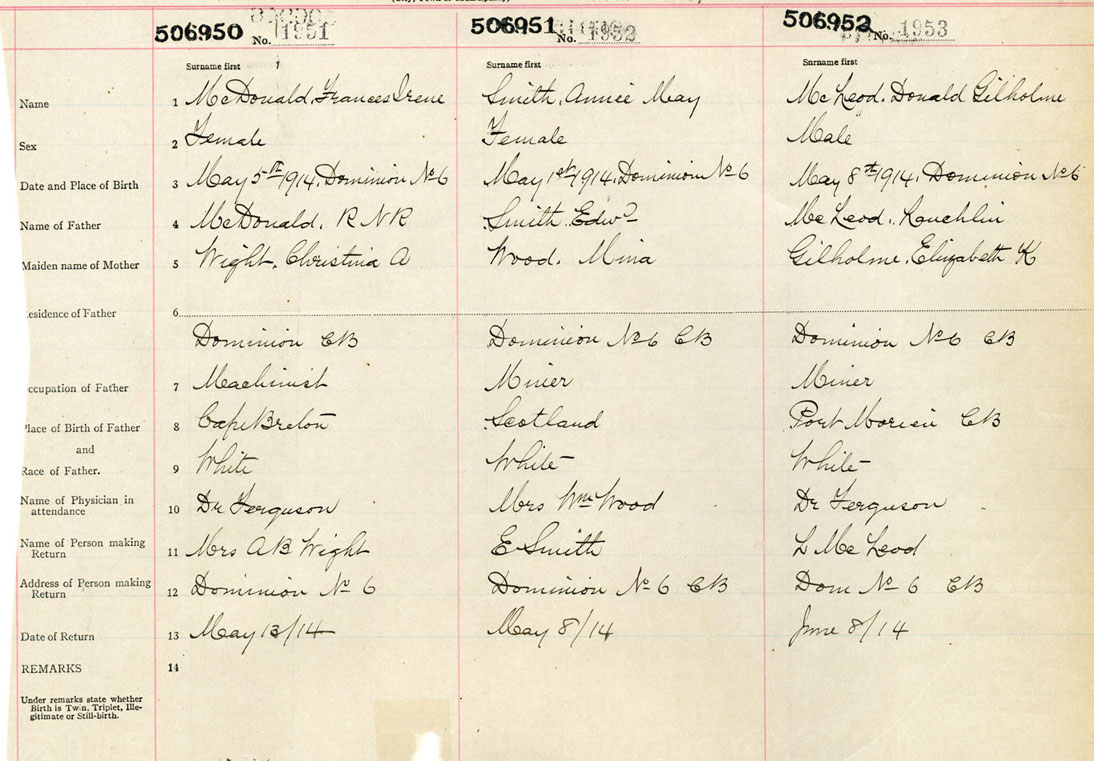 506950 No. 1951 506951 No. 1952 506952 No. 1953
Surname first Surname first Surname first
Name 1 McDonald, Frances Irene Smith, Annie May McLeod. Donald Gilholme
Sex 2 Female Female Male
Date and Place of Birth 3 May 5th 1914. Dominion No 6 May 1st 1914. Dominion No 6 May 8th 1914. Dominion No 6
Name of Father 4 McDonald. R N R Smith. Edwd McLeod. Lauchlin
Maiden name of Mother 5 Wright. Christina A Wood. Mina Gilholme. Elizabeth K
esidence of Father 6
Dominion CB Dominion No 6 CB Dominion No 6 CB
ccupation of Father 7 Machinist Miner Miner
Place of Birth of Father 8 Cape Breton Scotland Port Morien CB
and
Race of Father. 9 White White White
Name of Physician in attendance 10 Dr Ferguson Mrs Wm Wood Dr Ferguson
Name of Person making Return 11 Mrs AB Wright E Smith L McLeod
Address of Person making Return 12 Dominion No 6 Dominion No 6 CB Dom No 6 CB
Date of Return 13 May 13/14 May 8/14 June 8/14
REMARKS 14
Under remarks state whether
Birth is Twin, Triplet, Ille-
gitimate or Still-birth.